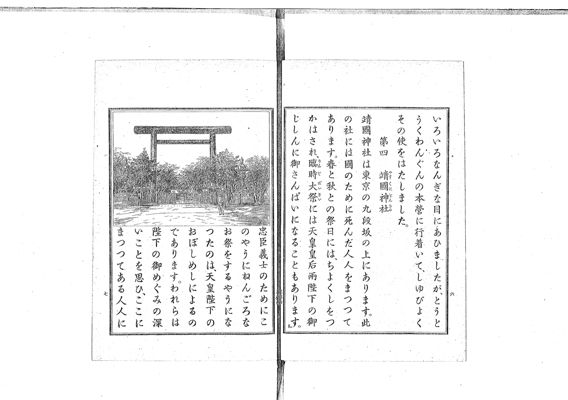 いろいろなんぎな目にあひましたが、とうと
うくわんぐんの本營に行着いて、しゆびよく
その使をはたしました。
第四 靖國神社
靖國神社は東京の九段坂の上にあります。此
の社には國のために死んだ人人をまつつて
あります。春と秋との祭日には、ちよくしをつ
かはされ、臨時大祭には天皇皇后兩陛下の御
じしんに御さんぱいになることもあります。
六
忠臣義士のためにこ
のやうにねんごろな
お祭をするやうにな
つたのは、天皇陛下の
おぼしめしによるの
であります。われらは
陛下の御めぐみの深
いことを思ひ、ここに
まつつてある人人に
七